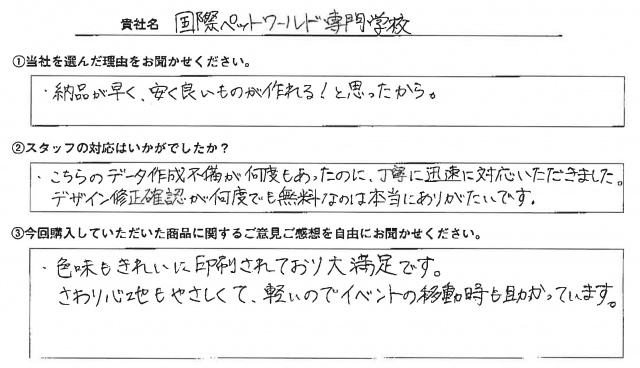 貴社名 国際ペットワールド専門学校
①当社を選んだ理由をお聞かせください。
・納品が早く、安く良いものが作れる！と思ったから。
②スタッフの対応はいかがでしたか？
・こちらのデータ作成不備が何度もあったのに、丁寧に迅速に対応いただきました。
デザイン修正確認が何度でも無料なのは本当にありがたいです。
③今回購入していただいた商品に関するご意見ご感想を自由にお聞かせください。
・色味もきれいに印刷されており大満足です。
さわり心地もやさしくて、軽いのでイベントの移動時も助かっています。